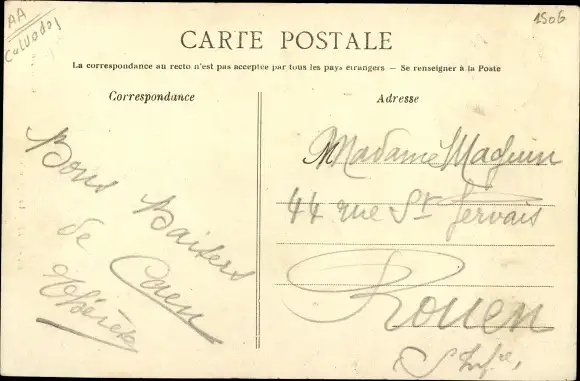 AA
Calvados
1506
CARTE POSTALE
La correspondance au recto n'est pas acceptée par tous les pays étrangers — Se renseigner à la Poste
Correspondance
Bons Baisers
de Caen
Thérèse
Adresse
Madame Maguin
44 rue St Gervais
Rouen
S Infre